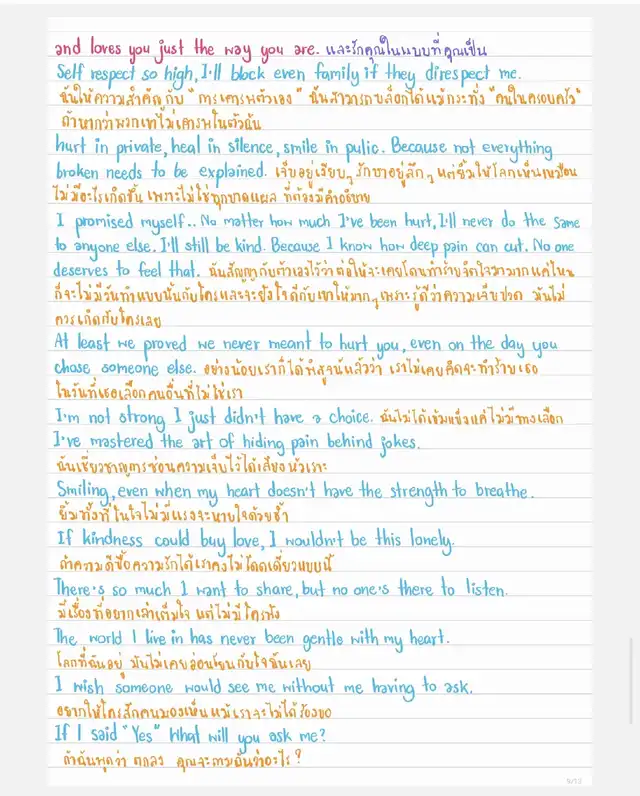 and loves you just the way you are. และรักคุณในแบบที่คุณเป็น
Self respect so high, I'll block even family if they direspect me.
ฉันให้ความสำคัญกับ "การเคารพตัวเอง" ฉันสามารถบล็อกได้แม้กระทั่ง "คนในครอบครัว"
ถ้าหากว่าพวกเขาไม่เคารพในตัวฉัน
hurt in private, heal in silence, smile in pulic. Because not everything
broken needs to be explained. เจ็บอยู่เงียบๆ รักษาอยู่ลึกๆ แต่ยิ้มให้โลกเห็นเหมือน
ไม่มีอะไรเกิดขึ้น เพราะไม่ใช่ทุกบาดแผล ที่ต้องมีคำอธิบาย
I promised myself.. No matter how much I've been hurt, I'll never do the same
to anyone else. I'll still be kind. Because I know how deep pain can cut. No one
deserves to feel that. ฉันสัญญากับตัวเองไว้ว่า ต่อให้จะเคยโดนทำร้ายจิตใจมามากแค่ไหน
ก็จะไม่มีวันทำแบบนั้นกับใครและจะยังใจดีกับเขาให้มากๆ เพราะรู้ดีว่าความเจ็บปวด มันไม่
ควรเกิดกับใครเลย
At least we proved we never meant to hurt you, even on the day you
chose someone else. อย่างน้อยเราก็ได้พิสูจน์แล้วว่า เราไม่เคยคิดจะทำร้ายเธอ
ในวันที่เธอเลือกคนอื่นที่ไม่ใช่เรา
I'm not strong I just didn't have a choice. ฉันไม่ได้เข้มแข็งแค่ไม่มีทางเลือก
I've mastered the art of hiding pain behind jokes.
ฉันเชี่ยวชาญการซ่อนความเจ็บไว้ใต้เสียงหัวเราะ
Smiling, even when my heart doesn't have the strength to breathe.
ยิ้มทั้งที่ในใจไม่มีแรงจะหายใจด้วยซ้ำ
If kindness could buy love, I wouldn't be this lonely.
ถ้าความดีซื้อความรักได้เราคงไม่โดดเดี่ยวแบบนี้
There's so much I want to share, but no one's there to listen.
มีเรื่องที่อยากเล่าเต็มใจ แต่ไม่มีใครฟัง
The world I live in has never been gentle with my heart.
โลกที่ฉันอยู่ มันไม่เคยอ่อนโยนกับใจฉันเลย
I wish someone would see me without me having to ask.
อยากให้ใครสักคนมองเห็นแม้เราจะไม่ได้ร้องขอ
If I said "Yes" What will you ask me?
ถ้าฉันพูดว่า ตกลง คุณจะถามฉันว่าอะไร?
9/12